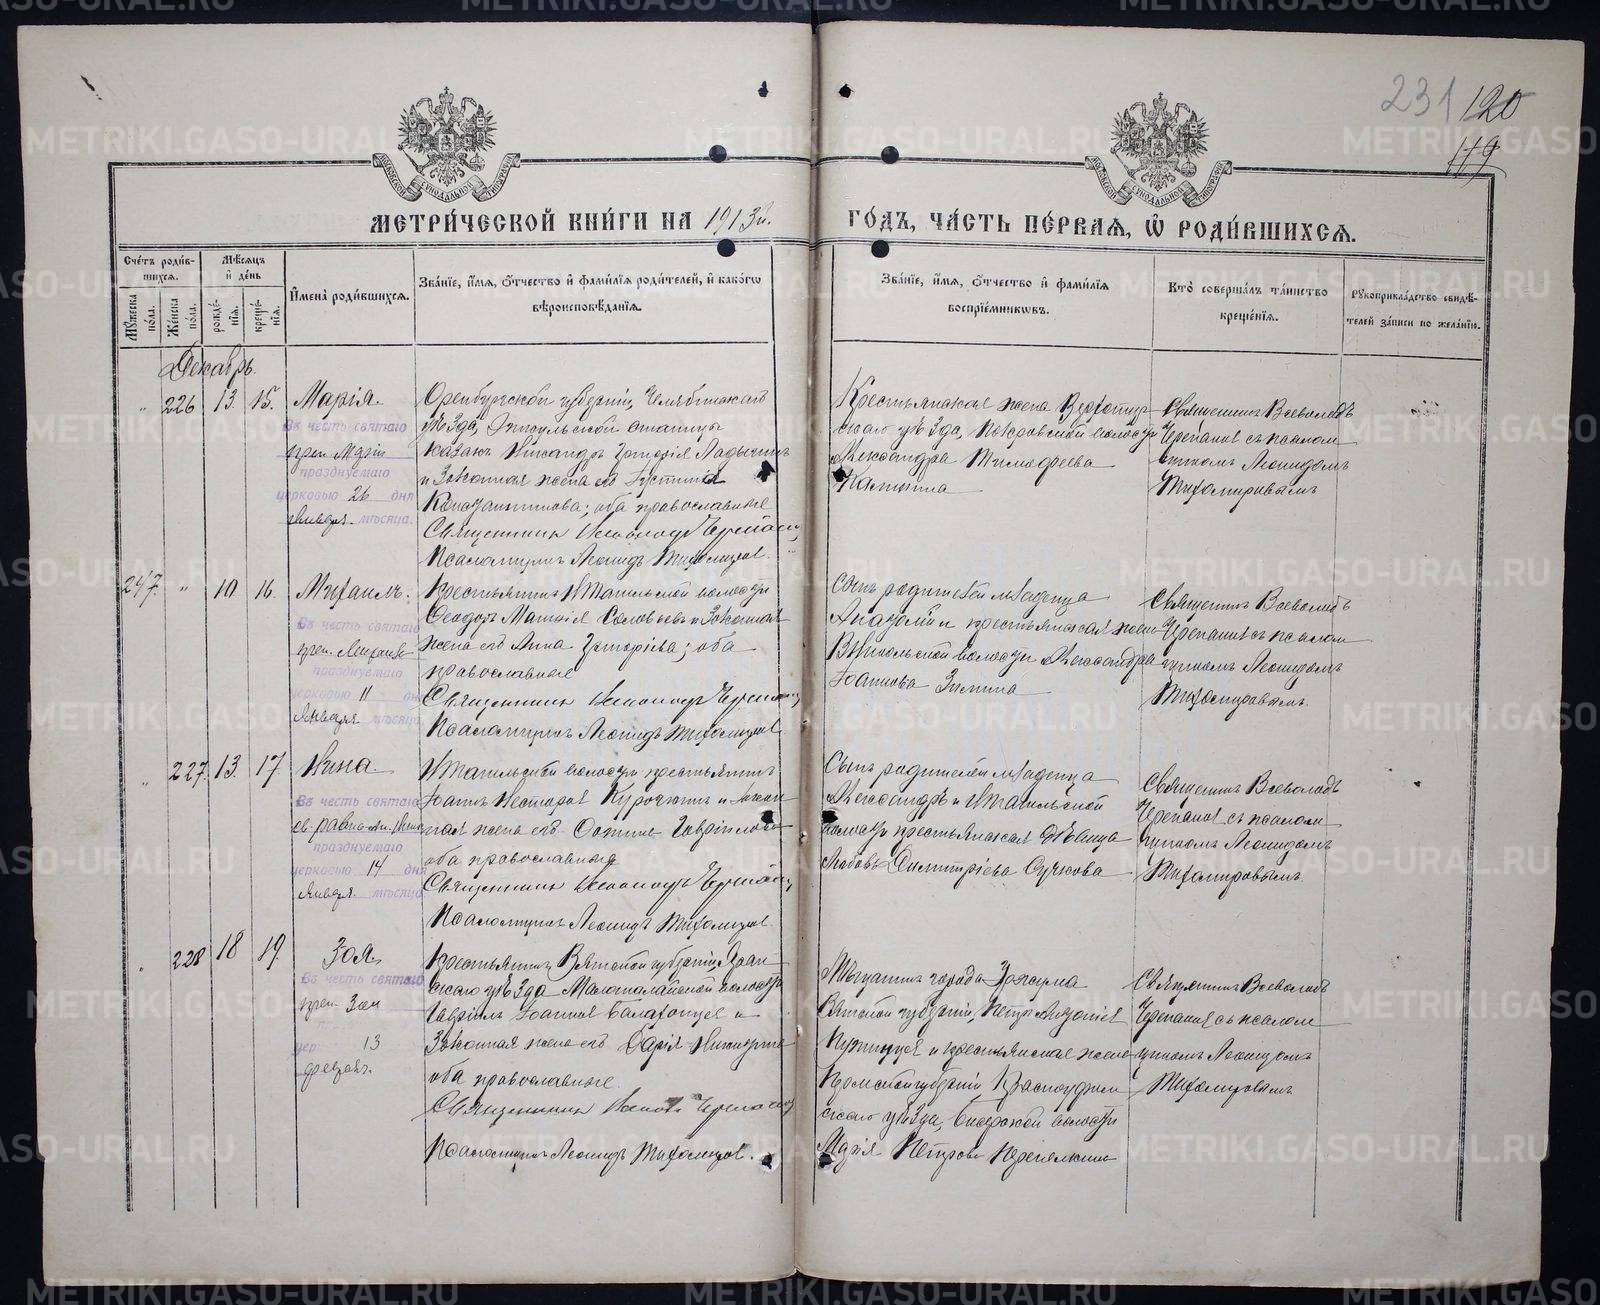 231 120
119
МЕТРИ́ЧЕСКОЙ КНИ́ГИ НА 1913й.
ГО́ДЪ, ЧА́СТЬ ПЕ́РВАЯ, Ѡ РОДИ́ВШИХСЯ.
Сче́тъ роди́в-
шихся.
Мѣ́сяцъ
и҆ де́нь
Мꙋ́жеска по́ла.
Же́нска по́ла.
рожде́-
нїя.
креще́-
нїя.
И҆мена̀ роди́вшихся.
Зва́нїе, и҆́мя, ѻ҆́тчество и҆ фами́лїя роди́телей, и҆ како́гѡ
вѣроисповѣ́данїя.
Зва́нїе, и҆́мя, ѻ҆́тчество и҆ фами́лїя
воспрїе́мникѡвъ.
Кто̀ соверша́лъ та́инство
креще́нїя.
Рꙋкоприкла́дство свидѣ́-
телей за́писи по жела́нїю.
Декабрь.
226 13. 15. Марія.
Въ честь святаго
преп. Маріи
празднуемаго
церковью 26 дня
Января. мѣсяца.
Оренбургской губерніи, Челябинскаго
уѣзда, станицы
казакъ Никандръ Григорія
и законная жена его Іустина
Константинова; оба православные
Священникъ Всеволодъ Черепановъ
Псаломщикъ Леонидъ Тихомировъ.
Крестьянская жена Верхотур
скаго уѣзда, Покровской волости
Александра Тимофеева
Калинина
Священникъ Всеволодъ
Черепановъ съ псалом
щикомъ Леонидомъ
Тихомировымъ
247. 10. 16. Михаилъ.
Въ честь святаго
преп. Михаила
празднуемаго
церковью 11 дня
Января мѣсяца
Крестьянинъ Н Тагильской волости
Феодоръ Соловьевъ и законная
жена его Анна Григоріева; оба
православные
Священникъ Всеволодъ Черепановъ
Псаломщикъ Леонидъ Тихомировъ.
Сынъ родителей младенца
Анатолій и крестьянская жена
В Тагильской волости Александра
Іоаннова Зимина
Священникъ Всеволодъ
Черепановъ съ псалом
щикомъ Леонидомъ
Тихомировымъ.
227. 13. 17. Нина.
Въ честь святаго
св. равно-ап. Нины
празднуемаго
церковью 14 дня
Января мѣсяца
Н Тагильской волости крестьянинъ
Іоаннъ Несторовъ Курочкинъ и закон
ная жена его Гавріилова
оба православные
Священникъ Всеволодъ Черепановъ
Псаломщикъ Леонидъ Тихомировъ.
Сынъ родителей младенца
Александръ и Н Тагильской
волости крестьянская дѣвица
Любовь Димитріева Сучкова
Священникъ Всеволодъ
Черепановъ съ псалом
щикомъ Леонидомъ
Тихомировымъ.
228 18 19. Зоя.
Въ честь святаго
преп. Зои
13
февраля.
Крестьянинъ Вятской губерніи, Яран
скаго уѣзда волости
Гавріилъ Іоанновъ и
законная жена его Дарія
оба православные.
Священникъ Всеволодъ Черепановъ
Псаломщикъ Леонидъ Тихомировъ.
Мѣщанинъ города Уржума
Вятской губерніи, Петръ
и крестьянская жена
Пермской губерніи, Красноуфим
скаго уѣзда, волости
Марія Петрова
Священникъ Всеволодъ
Черепановъ съ псалом
щикомъ Леонидомъ
Тихомировымъ
METRIKI.GASO-URAL.RU